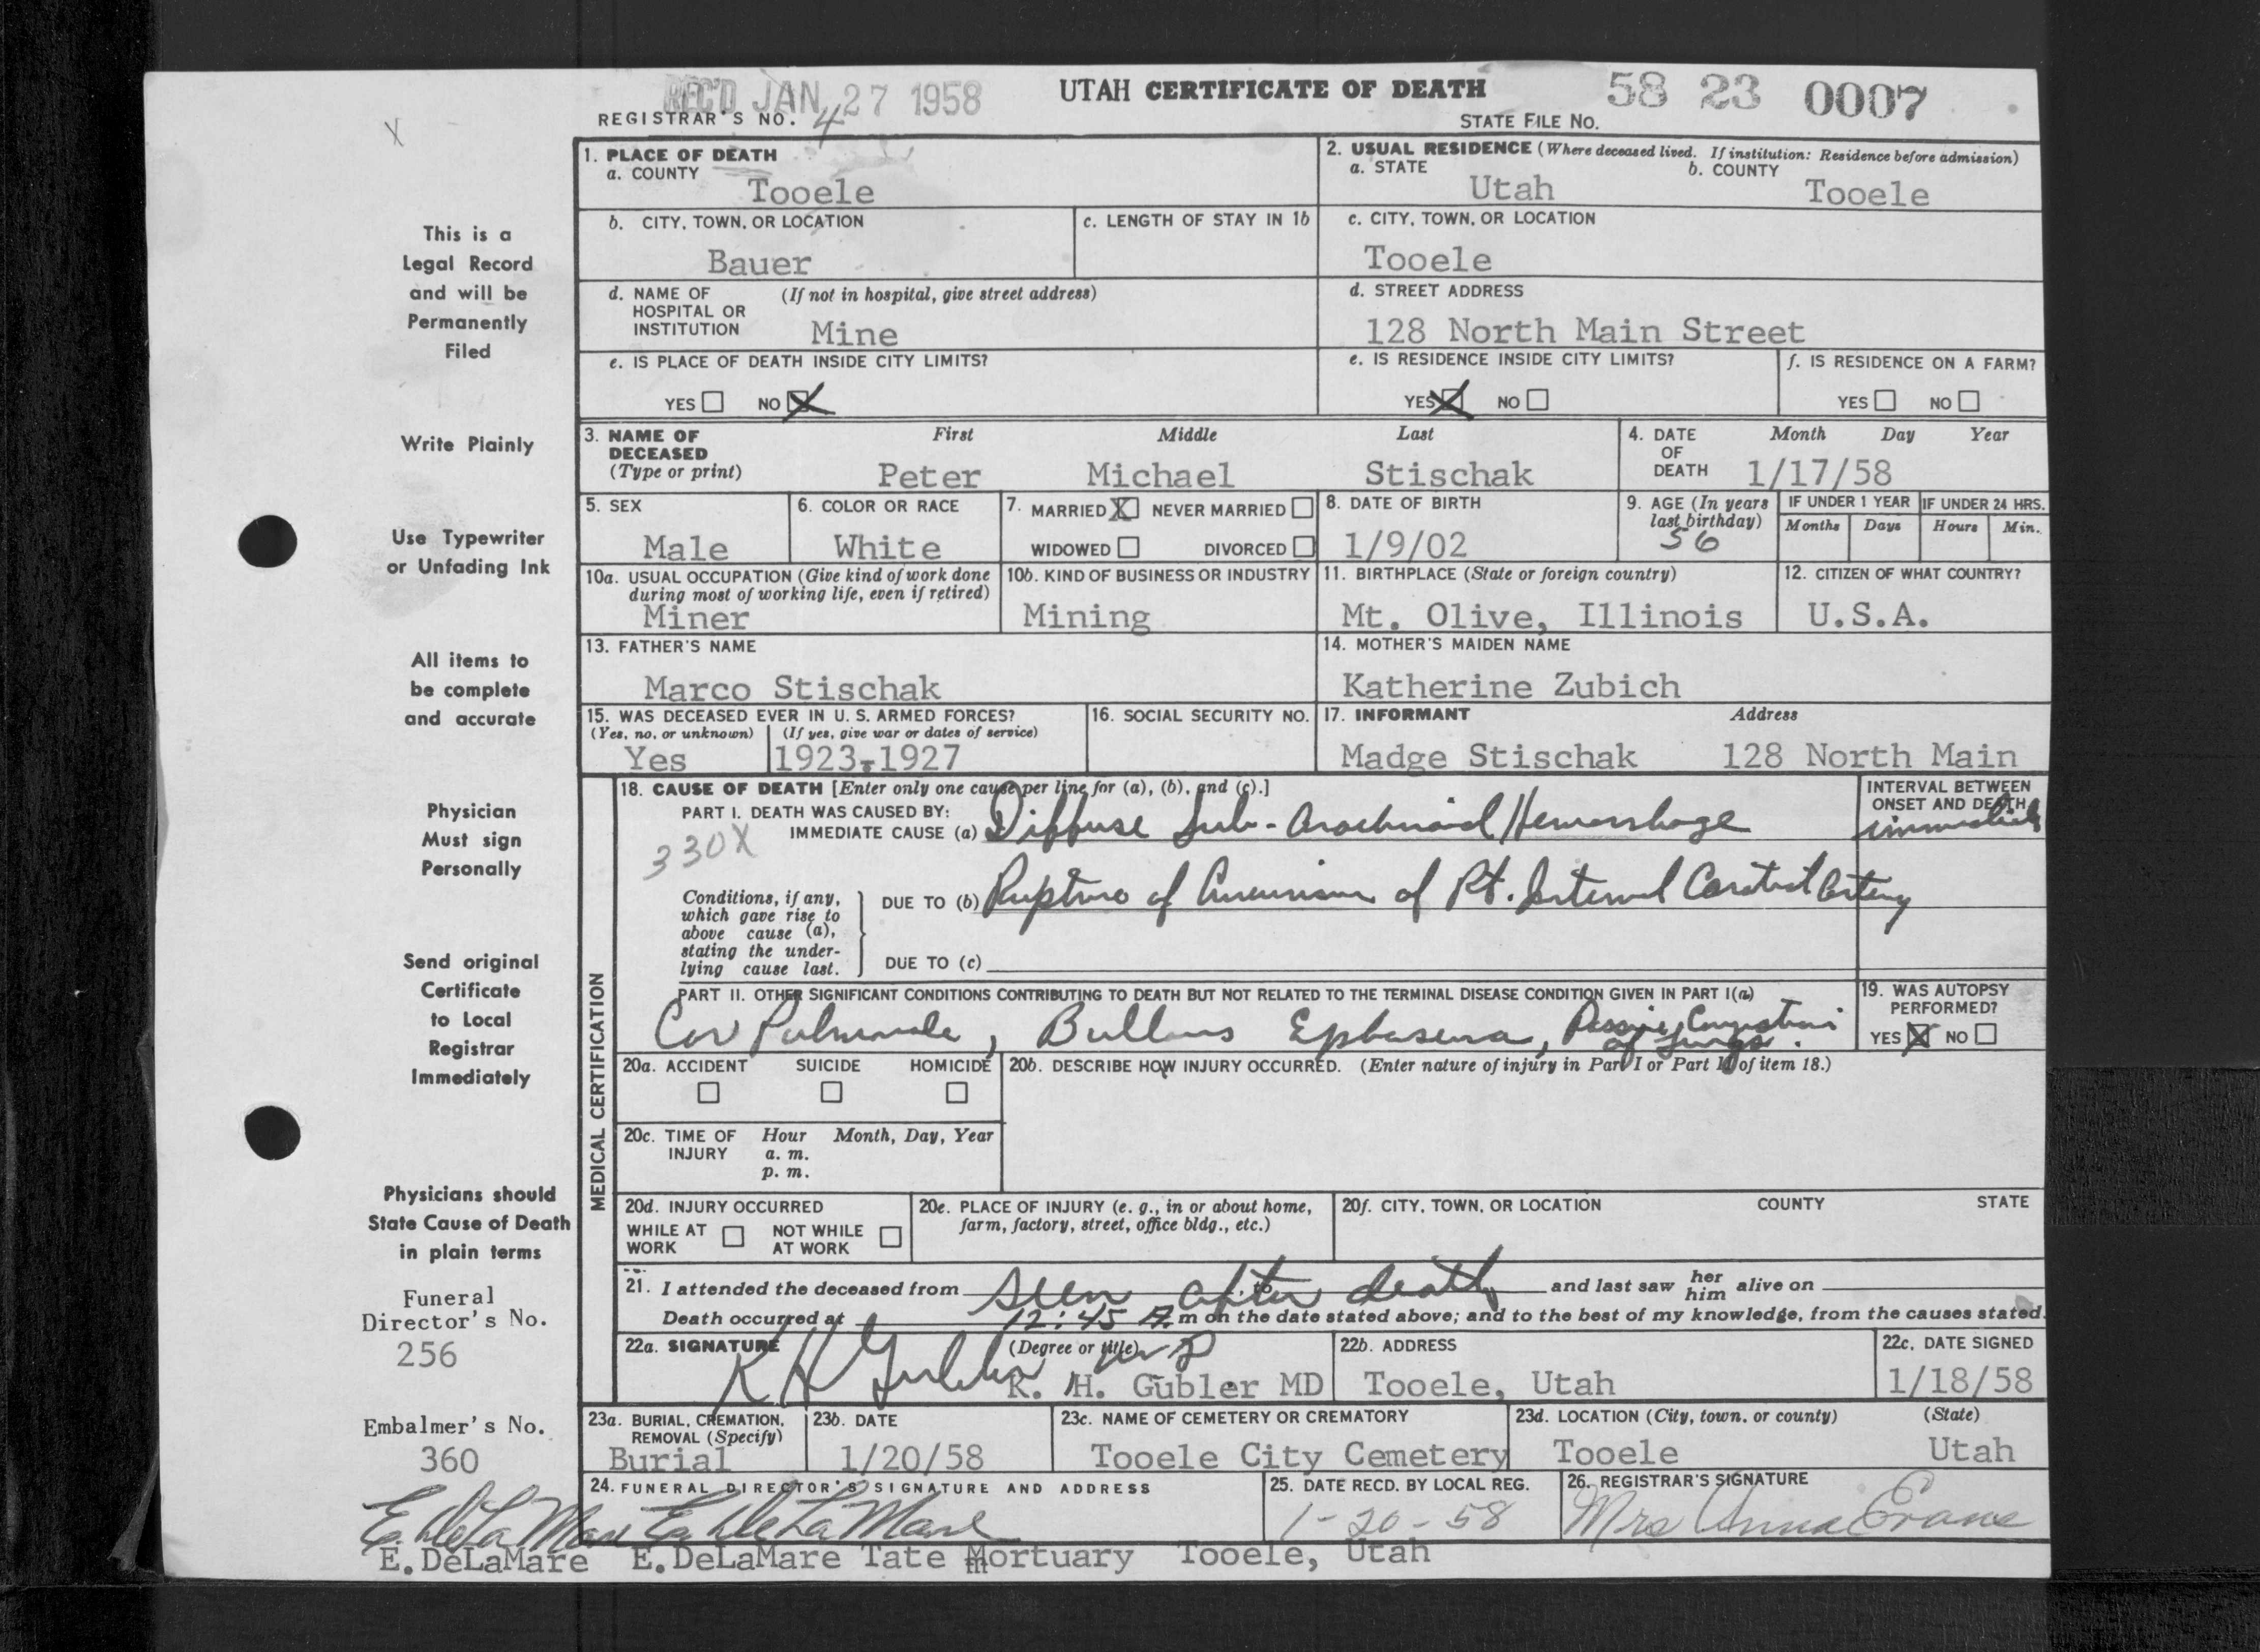 REC'D JAN 27 1958
UTAH CERTIFICATE OF DEATH
58 23 0007
REGISTRAR'S NO. 4
STATE FILE NO.
X
1. PLACE OF DEATH
a. COUNTY
Tooele
2. USUAL RESIDENCE (Where deceased lived. If institution: Residence before admission)
a. STATE
Utah
b. COUNTY
Tooele
b. CITY, TOWN, OR LOCATION
Bauer
c. LENGTH OF STAY IN 1b
c. CITY, TOWN, OR LOCATION
Tooele
d. NAME OF HOSPITAL OR INSTITUTION
(If not in hospital, give street address)
Mine
d. STREET ADDRESS
128 North Main Street
e. IS PLACE OF DEATH INSIDE CITY LIMITS?
YES NO X
e. IS RESIDENCE INSIDE CITY LIMITS?
YES X NO
f. IS RESIDENCE ON A FARM?
YES NO
3. NAME OF DECEASED
(Type or print)
First Middle Last
Peter Michael Stischak
4. DATE OF DEATH
Month Day Year
1/17/58
5. SEX
Male
6. COLOR OR RACE
White
7. MARRIED X NEVER MARRIED
WIDOWED DIVORCED
8. DATE OF BIRTH
1/9/02
9. AGE (In years last birthday)
56
IF UNDER 1 YEAR
Months Days
IF UNDER 24 HRS.
Hours Min.
10a. USUAL OCCUPATION (Give kind of work done during most of working life, even if retired)
Miner
10b. KIND OF BUSINESS OR INDUSTRY
Mining
11. BIRTHPLACE (State or foreign country)
Mt. Olive, Illinois
12. CITIZEN OF WHAT COUNTRY?
U.S.A.
13. FATHER'S NAME
Marco Stischak
14. MOTHER'S MAIDEN NAME
Katherine Zubich
15. WAS DECEASED EVER IN U. S. ARMED FORCES?
(Yes, no, or unknown) (If yes, give war or dates of service)
Yes 1923-1927
16. SOCIAL SECURITY NO.
17. INFORMANT Address
Madge Stischak 128 North Main
MEDICAL CERTIFICATION
18. CAUSE OF DEATH [Enter only one cause per line for (a), (b), and (c).]
PART I. DEATH WAS CAUSED BY:
IMMEDIATE CAUSE (a) Diffuse Sub-Arachnoid Hemorrhage
330X
INTERVAL BETWEEN ONSET AND DEATH
immediate
Conditions, if any, which gave rise to above cause (a), stating the underlying cause last.
DUE TO (b) Rupture of Aneurism of Rt. Internal Carotid Artery
DUE TO (c)
PART II. OTHER SIGNIFICANT CONDITIONS CONTRIBUTING TO DEATH BUT NOT RELATED TO THE TERMINAL DISEASE CONDITION GIVEN IN PART I(a)
Cor Pulmonale, Bullous Ephasema, Passive Congestion of Lungs.
19. WAS AUTOPSY PERFORMED?
YES X NO
20a. ACCIDENT SUICIDE HOMICIDE
20b. DESCRIBE HOW INJURY OCCURRED. (Enter nature of injury in Part I or Part II of item 18.)
20c. TIME OF INJURY
Hour Month, Day, Year
a. m.
p. m.
20d. INJURY OCCURRED
WHILE AT WORK NOT WHILE AT WORK
20e. PLACE OF INJURY (e. g., in or about home, farm, factory, street, office bldg., etc.)
20f. CITY, TOWN, OR LOCATION COUNTY STATE
21. I attended the deceased from seen after death and last saw her him alive on
Death occurred at 12:45 A. m on the date stated above; and to the best of my knowledge, from the causes stated.
22a. SIGNATURE (Degree or title)
K H Gubler MD
R. H. Gubler MD
22b. ADDRESS
Tooele, Utah
22c. DATE SIGNED
1/18/58
23a. BURIAL, CREMATION, REMOVAL (Specify)
Burial
23b. DATE
1/20/58
23c. NAME OF CEMETERY OR CREMATORY
Tooele City Cemetery
23d. LOCATION (City, town, or county) (State)
Tooele Utah
24. FUNERAL DIRECTOR'S SIGNATURE AND ADDRESS
E. DeLaMare E. DeLaMare
E.DeLaMare E.DeLaMare Tate Mortuary Tooele, Utah
25. DATE RECD. BY LOCAL REG.
1-20-58
26. REGISTRAR'S SIGNATURE
Mrs Anna Evans
This is a
Legal Record
and will be
Permanently
Filed
Write Plainly
Use Typewriter
or Unfading Ink
All items to
be complete
and accurate
Physician
Must sign
Personally
Send original
Certificate
to Local
Registrar
Immediately
Physicians should
State Cause of Death
in plain terms
Funeral
Director's No.
256
Embalmer's No.
360